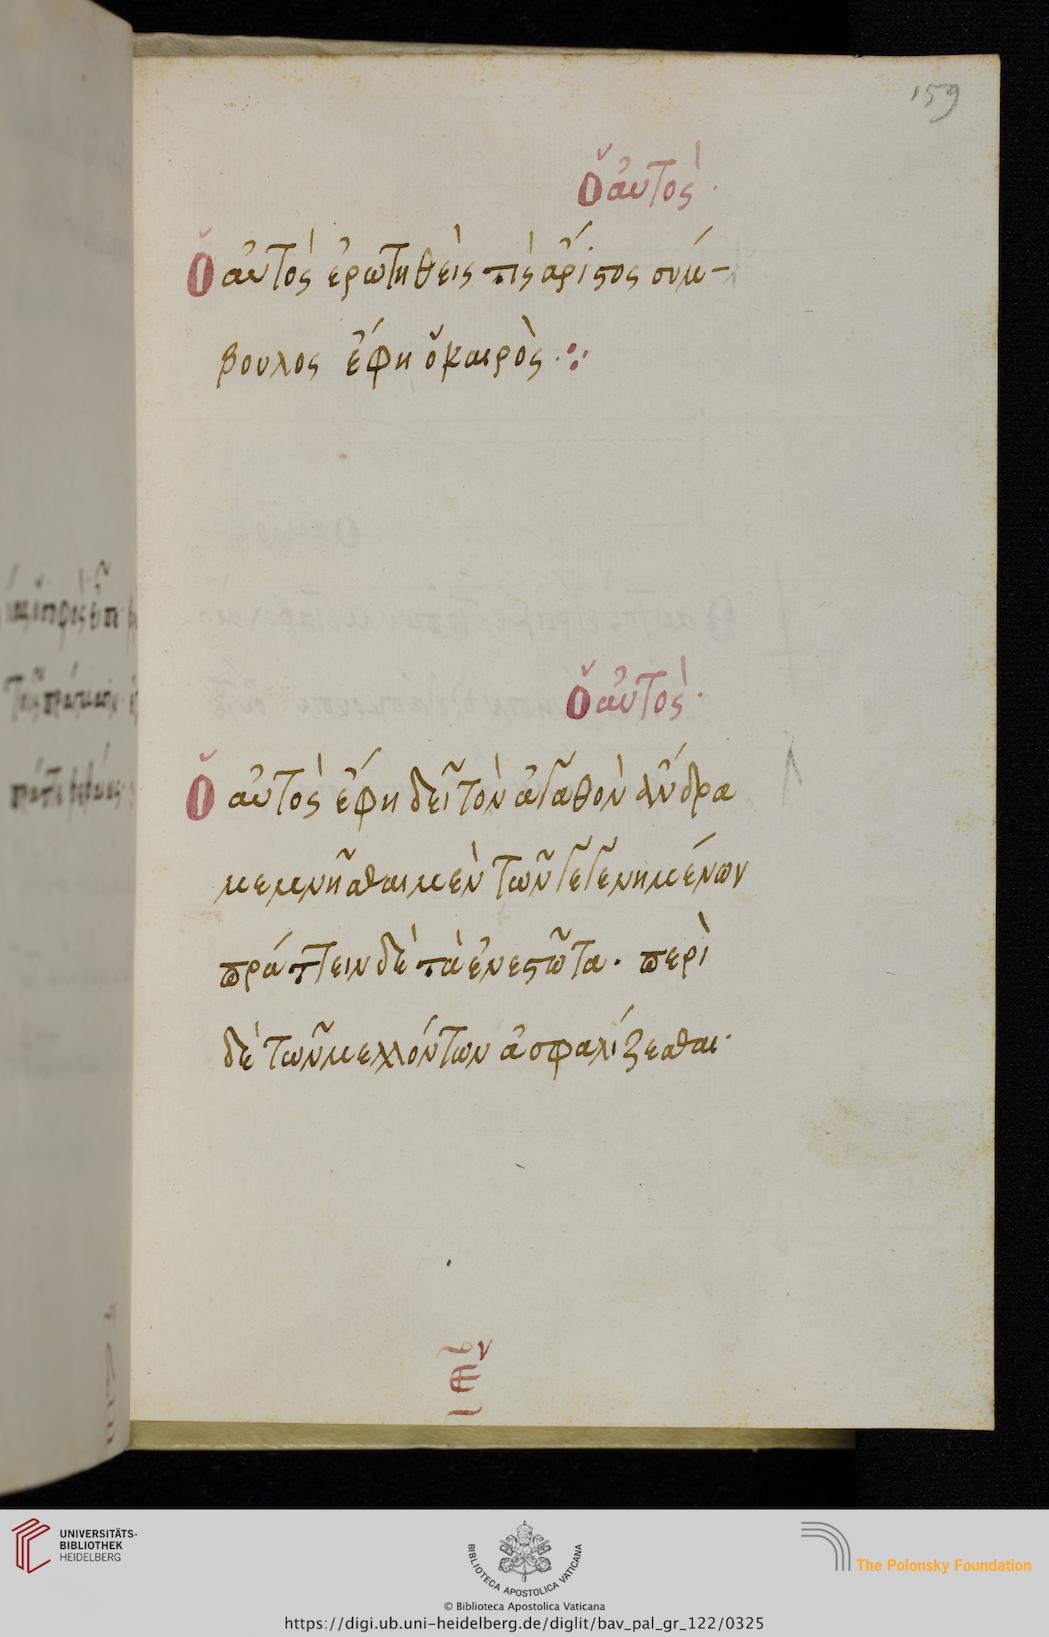 159
Ὁ αὐτός.
Ὁ αὐτὸς ἐρωτηθεὶς τίς ἄριστος σύμ-
βουλος ἔφη ὁ καιρὸς.
Ὁ αὐτός.
Ὁ αὐτὸς ἔφη δεῖ τὸν ἀγαθὸν ἄνδρα
μεμνῆσθαι μὲν τῶν γεγενημένων
πράττειν δὲ τὰ ἐνεστῶτα. περὶ
δὲ τῶν μελλόντων ἀσφαλίζεσθαι.
UNIVERSITÄTS-
BIBLIOTHEK
HEIDELBERG
BIBLIOTECA APOSTOLICA VATICANA
The Polonsky Foundation
© Biblioteca Apostolica Vaticana
https://digi.ub.uni-heidelberg.de/diglit/bav_pal_gr_122/0325